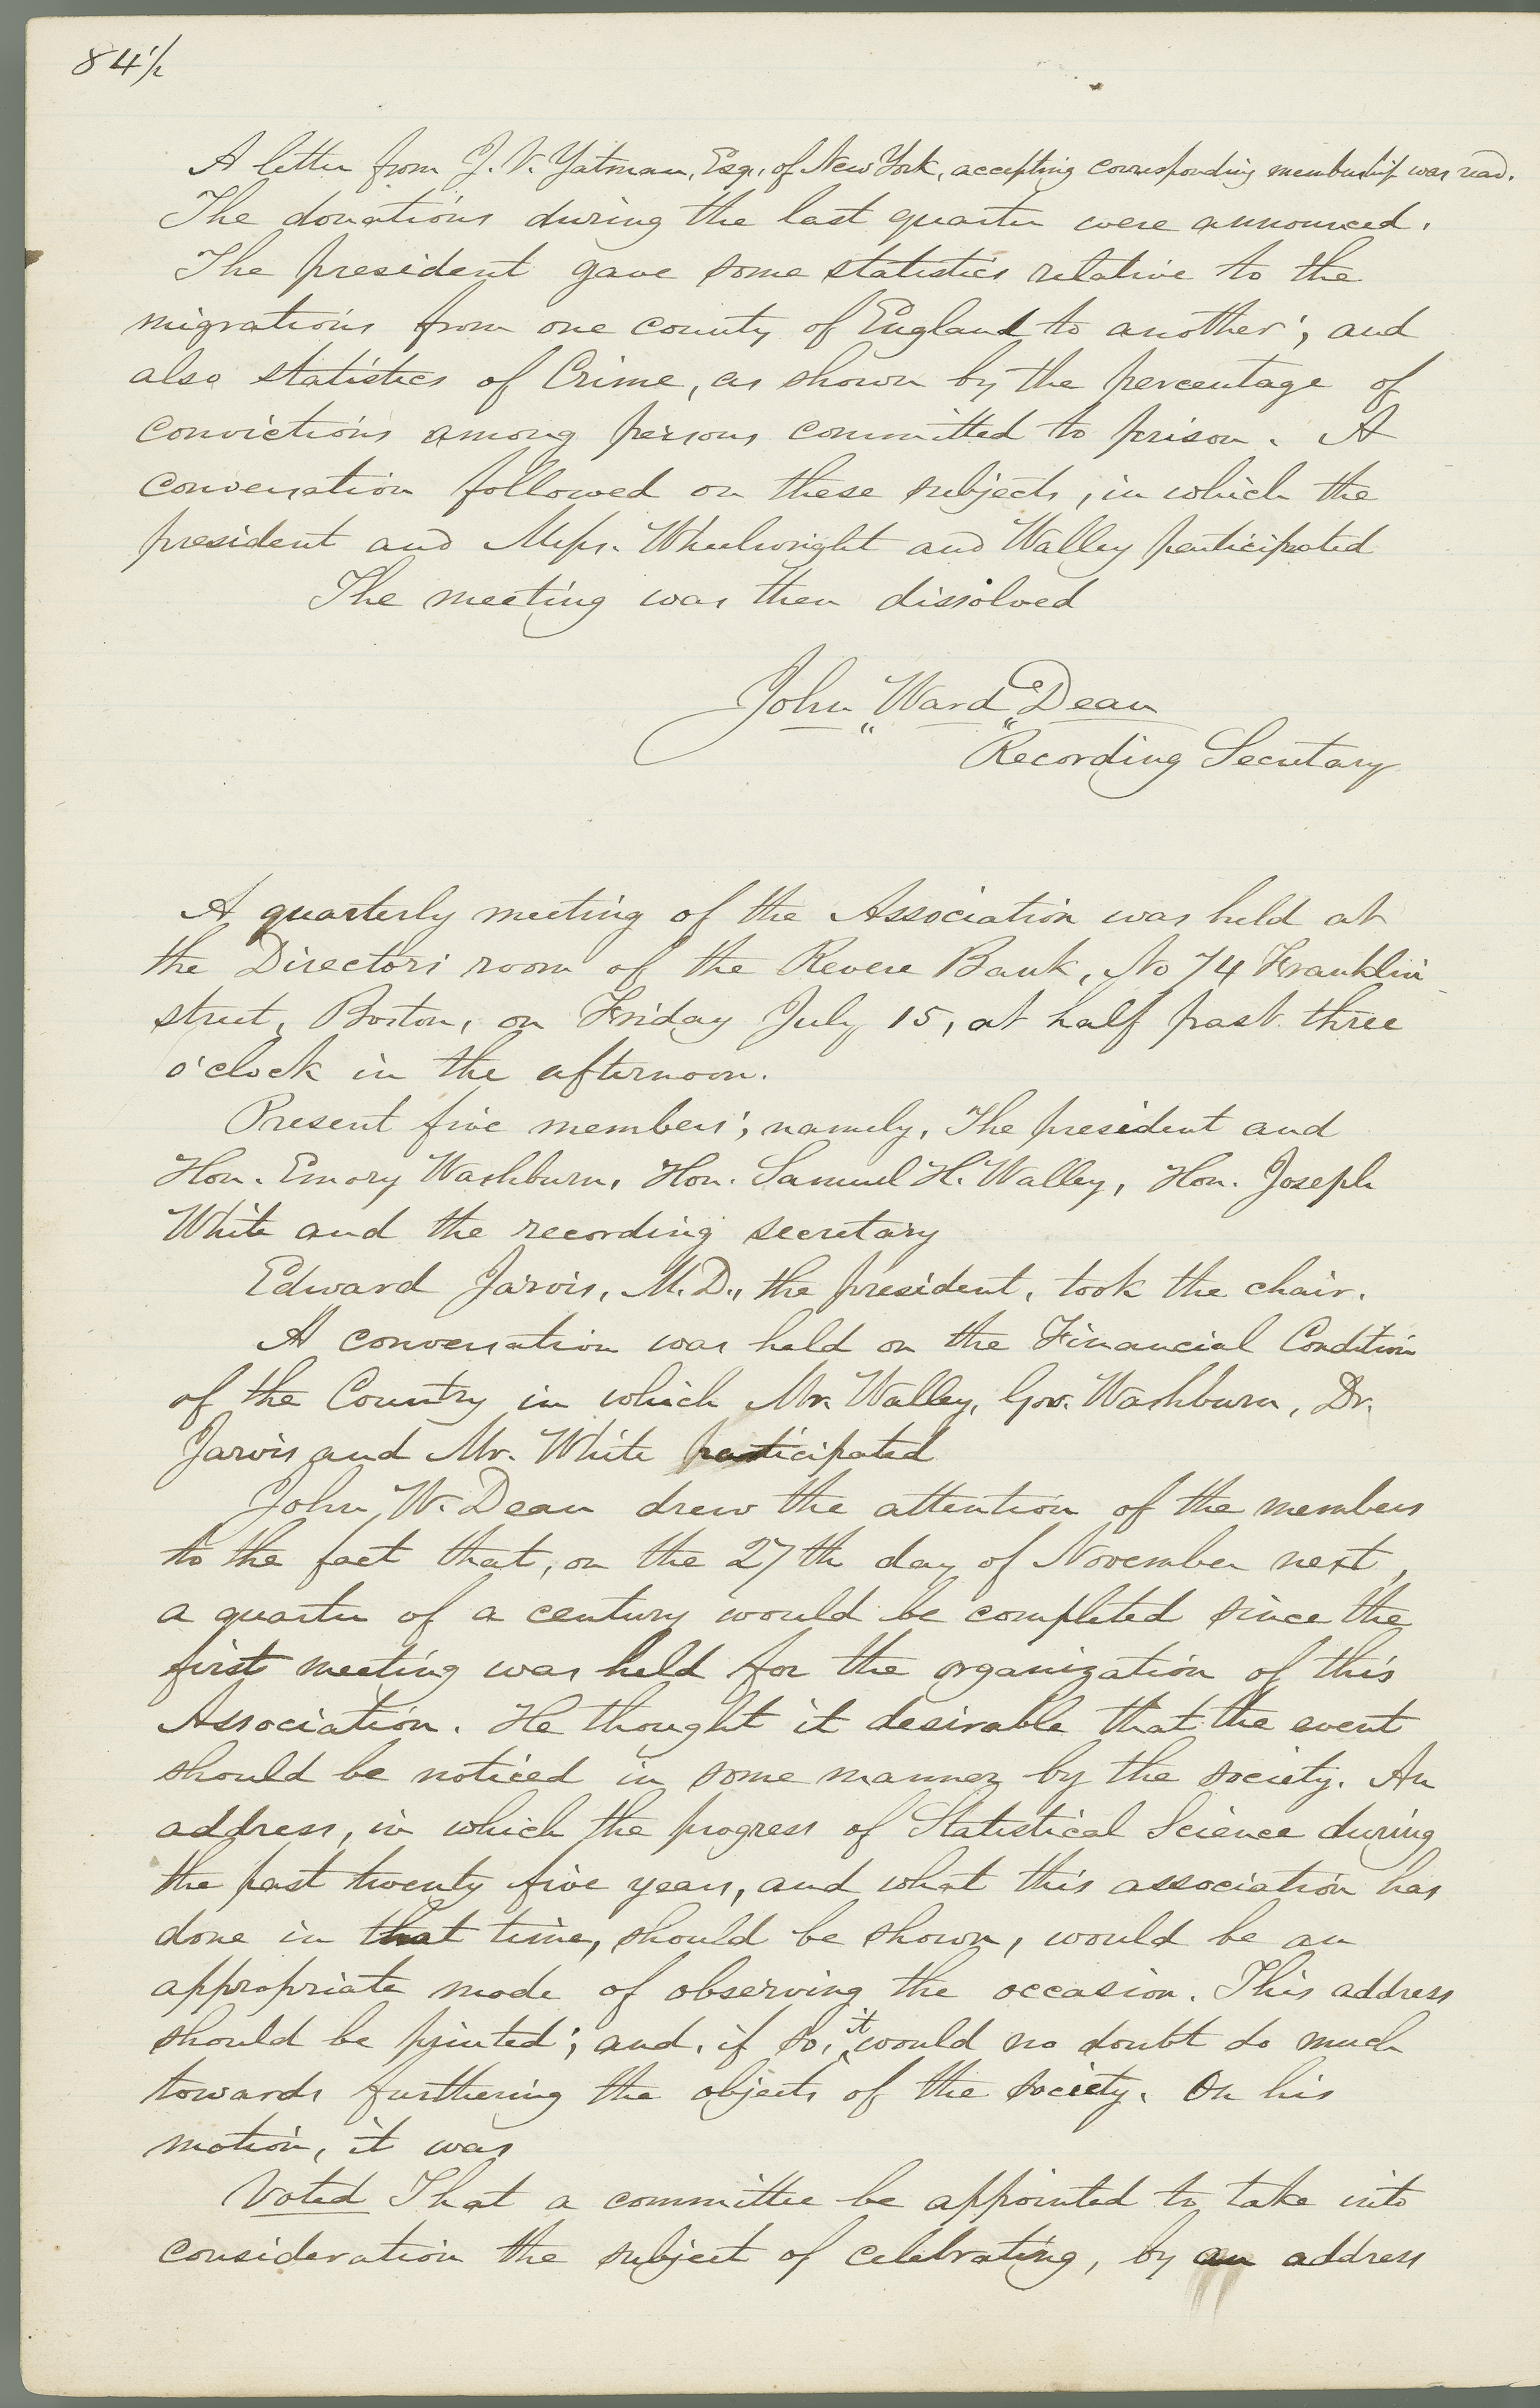 84 1/2
A letter from J. V. Yatman, Esq., of New York, accepting corresponding membership was read.
The donations during the last quarter were announced.
The president gave some statistics relative to the
migrations from one county of England to another; and
also statistics of Crime, as shown by the percentage of
convictions among persons committed to prison. A
conversation followed on these subjects, in which the
president and Messrs. Wheelwright and Walley participated
The meeting was then dissolved
John Ward Dean
Recording Secretary
A quarterly meeting of the Association was held at
the Directors room of the Revere Bank, No 74 Franklin
street, Boston, on Friday July 15, at half past three
o'clock in the afternoon.
Present five members; namely, The president and
Hon. Emory Washburn, Hon. Samuel H. Walley, Hon. Joseph
White and the recording secretary
Edward Jarvis, M.D., the president, took the chair.
A conversation was held on the Financial Condition
of the Country in which Mr. Walley, Gov. Washburn, Dr.
Jarvis and Mr. White participated
John W. Dean drew the attention of the members
to the fact that, on the 27th day of November next,
a quarter of a century would be completed since the
first meeting was held for the organization of this
Association. He thought it desirable that the event
should be noticed in some manner by the society. An
address, in which the progress of Statistical Science during
the past twenty five years, and what this association has
done in that time, should be shown, would be an
appropriate mode of observing the occasion. This address
should be printed; and, if so, it would no doubt do much
towards furthering the objects of the society. On his
motion, it was
Voted That a committee be appointed to take into
consideration the subject of celebrating, by an address